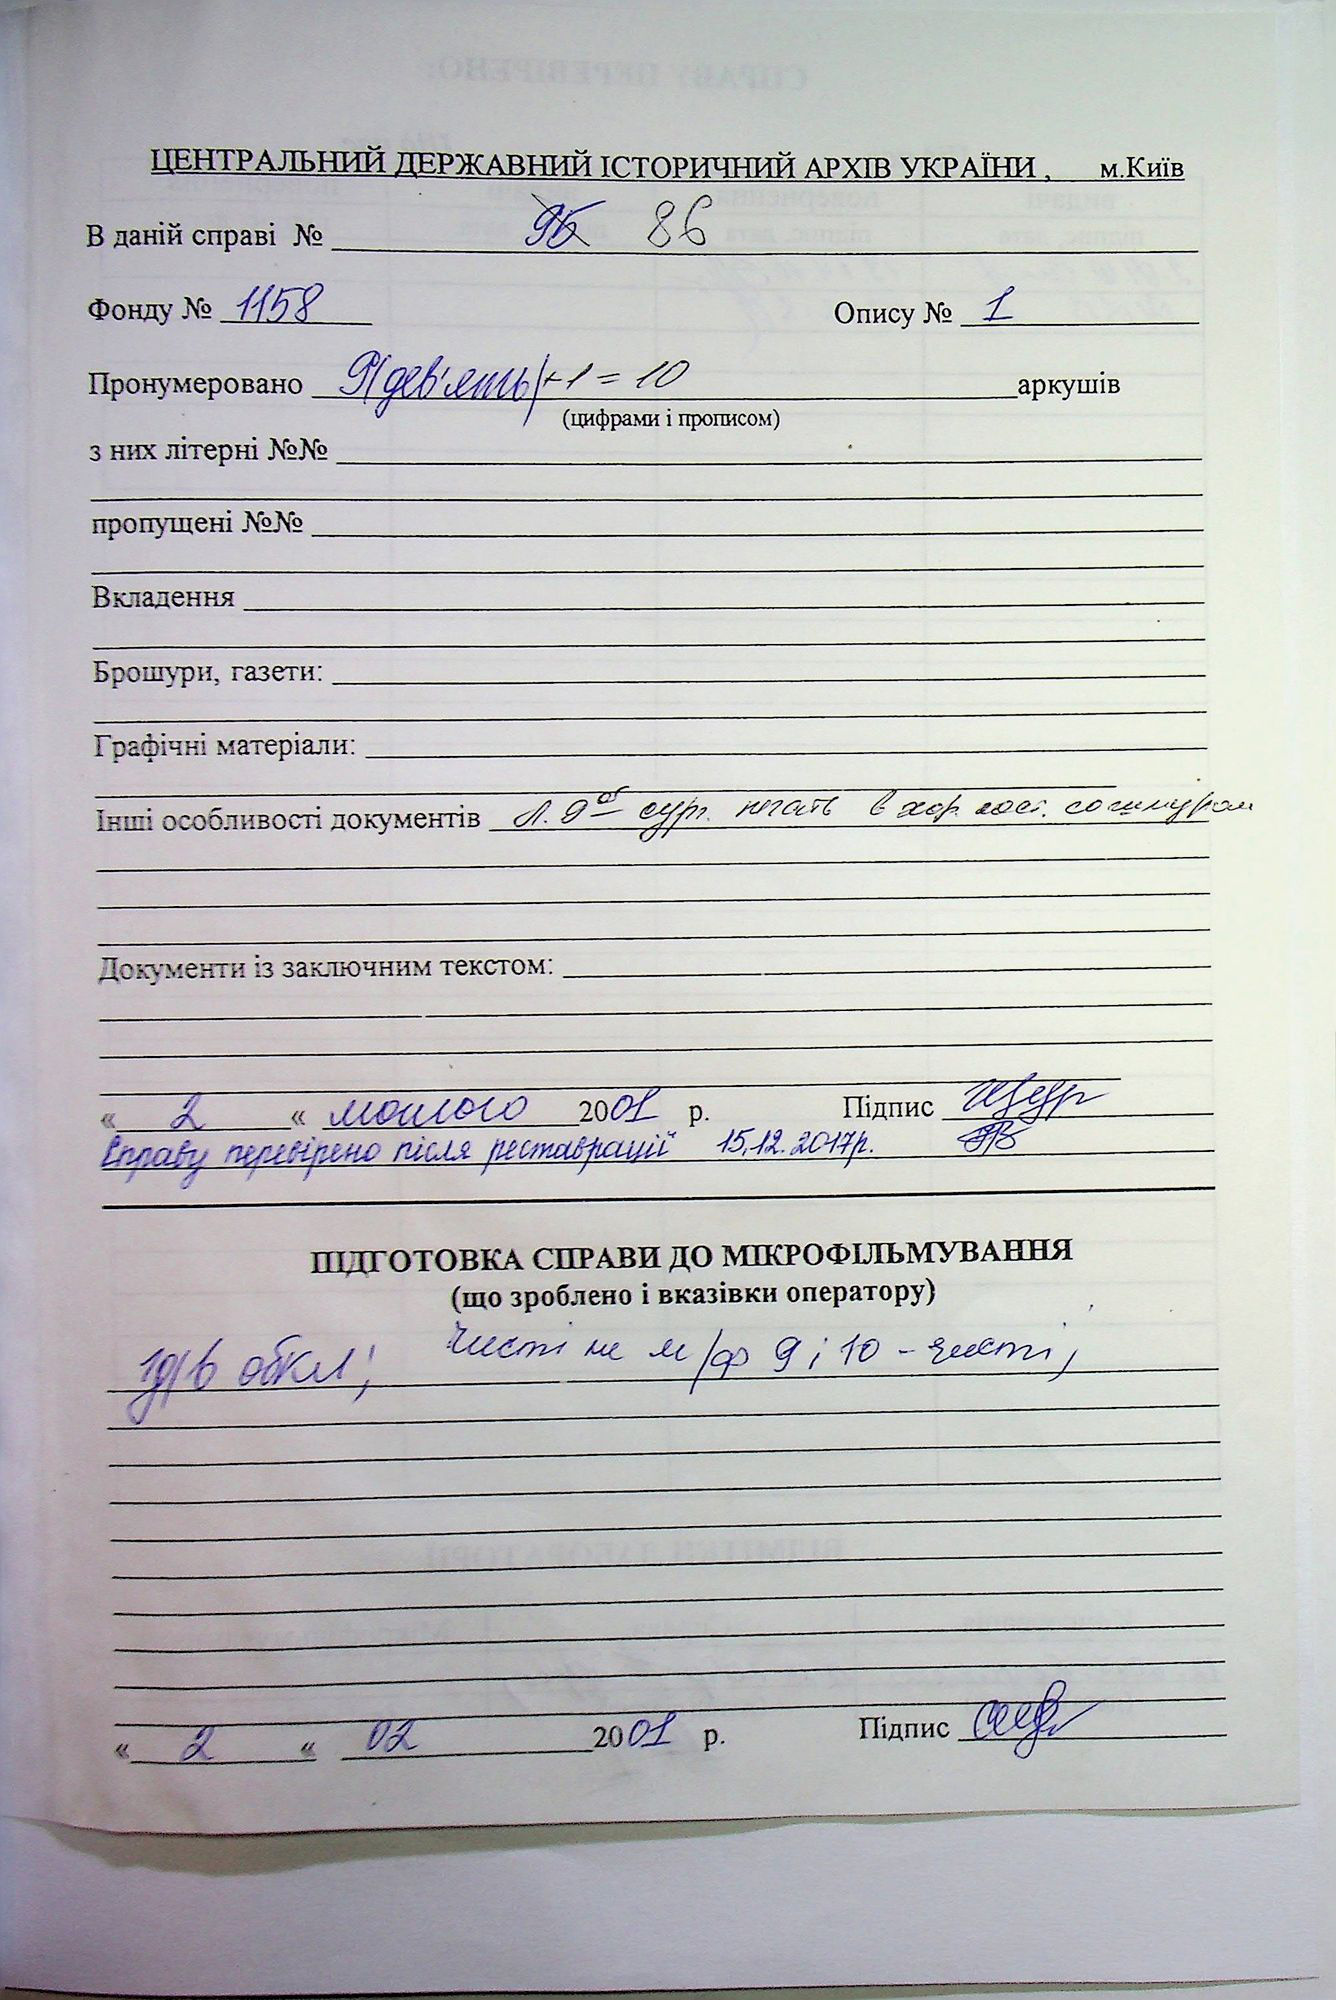 ЦЕНТРАЛЬНИЙ ДЕРЖАВНИЙ ІСТОРИЧНИЙ АРХІВ УКРАЇНИ , м.Київ
В даній справі № 86
Фонду № 1158 Опису № 1
Пронумеровано 9(дев'ять)+1=10 аркушів
(цифрами і прописом)
з них літерні №№
пропущені №№
Вкладення
Брошури, газети:
Графічні матеріали:
Інші особливості документів Л. 9об сург. печать в хор. сост. со шнуром
Документи із заключним текстом:
« 2 « лютого 2001 р. Підпис
Справу перевірено після реставрації 15.12.2017р.
ПІДГОТОВКА СПРАВИ ДО МІКРОФІЛЬМУВАННЯ
(що зроблено і вказівки оператору)
обкл; Чисті не м/ф 9 і 10 - чисті;
« 2 « 02 2001 р. Підпис